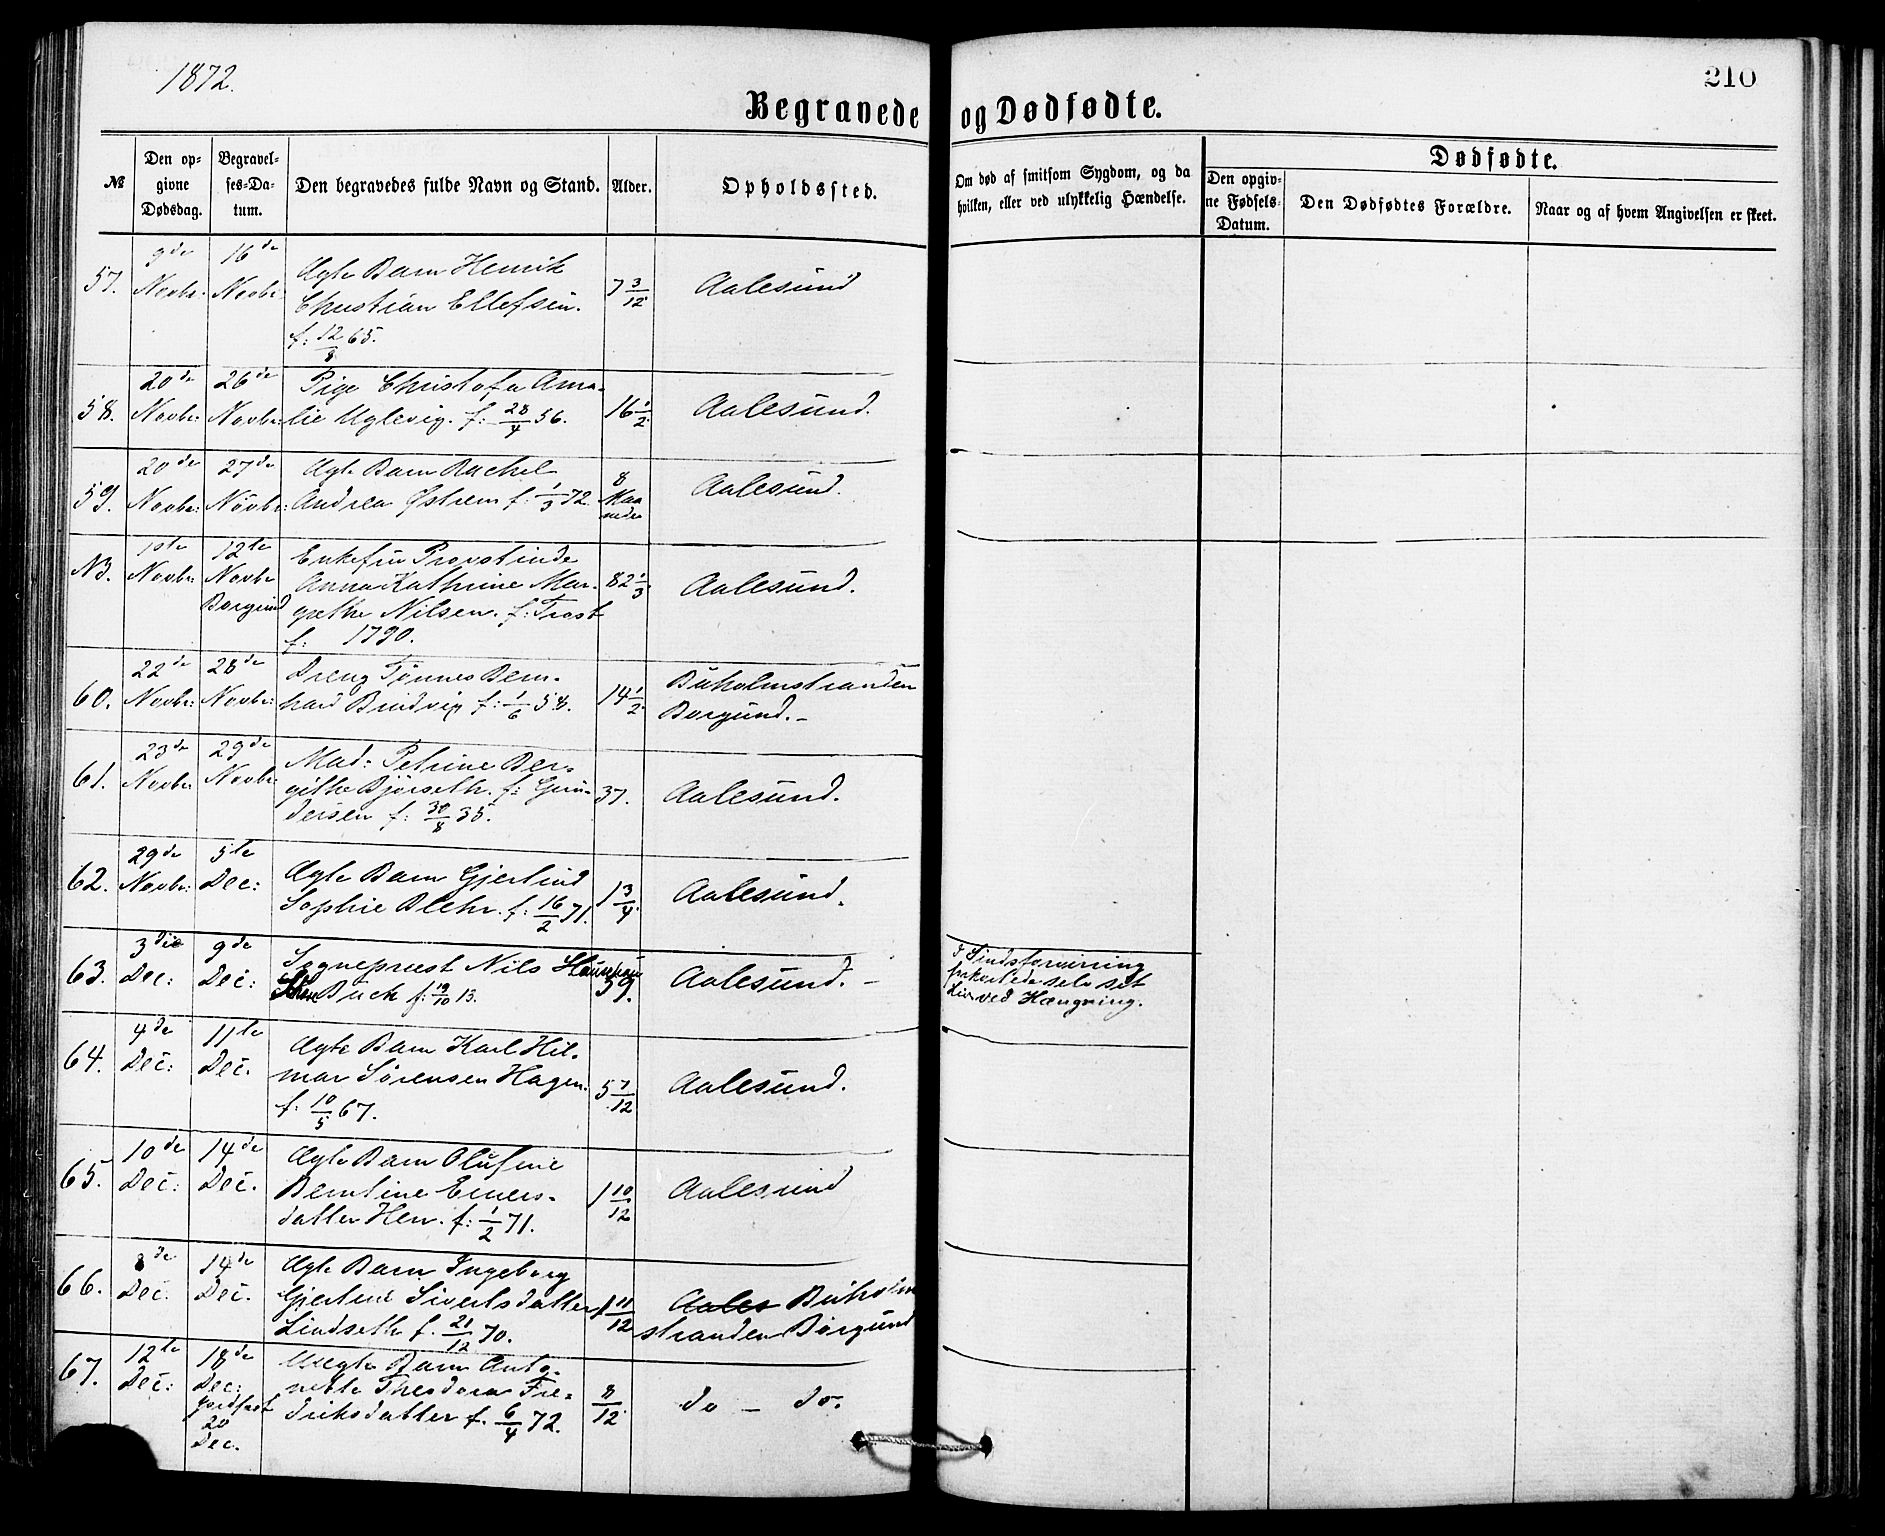 1872.
210
Begravede og Dødfødte.
№
Den op=
givne
Dødsdag.
Begravel=
ses=Da=
tum.
Den begravedes fulde Navn og Stand.
Alder.
Opholdssted.
Om død af smitsom Sygdom, og da
hvilken, eller ved ulykkelig Hændelse.
Dødfødte.
Den opgiv=
ne Fødsels=
Datum.
Den Dødfødtes Forældre.
Naar og af hvem Angivelsen er skeet.
57. 9de Novbr: 16de Novbr: Ægte Barn Henrik
Christian Ellefsen.
f: 12/8 65.
7 3/12
Aalesund
58. 20de Novbr: 26de Novbr: Pige Christofa Ama-
lie Uglevig. f: 28/4 56.
16 1/2
Aalesund.
59. 20de Novbr: 27de Novbr: Ægte Barn Rachel
Andrea Østrem f: 1/3 72.
8 Maa
neder
Aalesund.
N3. 1ste Novbr: 12te Novbr Borgund
Enkefru Provstinde
Anna Kathrine Mar-
grethe Nilsen. f: Trost
f: 1790.
82 1/3
Aalesund.
60. 22de Novbr: 28de Novbr: Dreng Tønnes Bern-
hard Brudvig f: 1/6 58.
14 1/2
Buholmstranden
Borgund.-
61. 23de Novbr: 29de Novbr: Mad: Petrine Ber-
githe Bjørseth. f: Gun-
dersen f: 30/8 35.
37.
Aalesund.
62. 29de Novbr: 5te Dec: Ægte Barn Gjertrud
Sophie Blehr. f: 16/2 71.
1 3/4
Aalesund.
63. 3die Dec: 9de Dec: Sognepræst Nils
Buch f: 19/10 13.
59.
Aalesund.-
I Sindsforvirring
forkortede selv sit
Liv ved Hængning.
64. 4de Dec: 11te Dec. Ægte Barn Karl Hil-
mar Sørensen Hagen.
f: 10/5 67.
5 7/12
Aalesund.
65. 10de Dec: 14de Dec. Ægte Barn Olufine
Berntine Einers-
datter Hen. f: 1/2 71.
1 10/12
Aalesund
66. 8de Dec. 14de Dec. Ægte Barn Ingeborg
Gjertine Sivertsdatter
Lindseth f. 21/12 70.
1 11/12
Aales Buholm
stranden Borgund
67. 12te Dec: 18de Dec: jordfæst 20 Dec.
Uægte Barn Anto-
nette Theodora Fre-
driksdatter f. 6/4 72.
8/12
do - do.